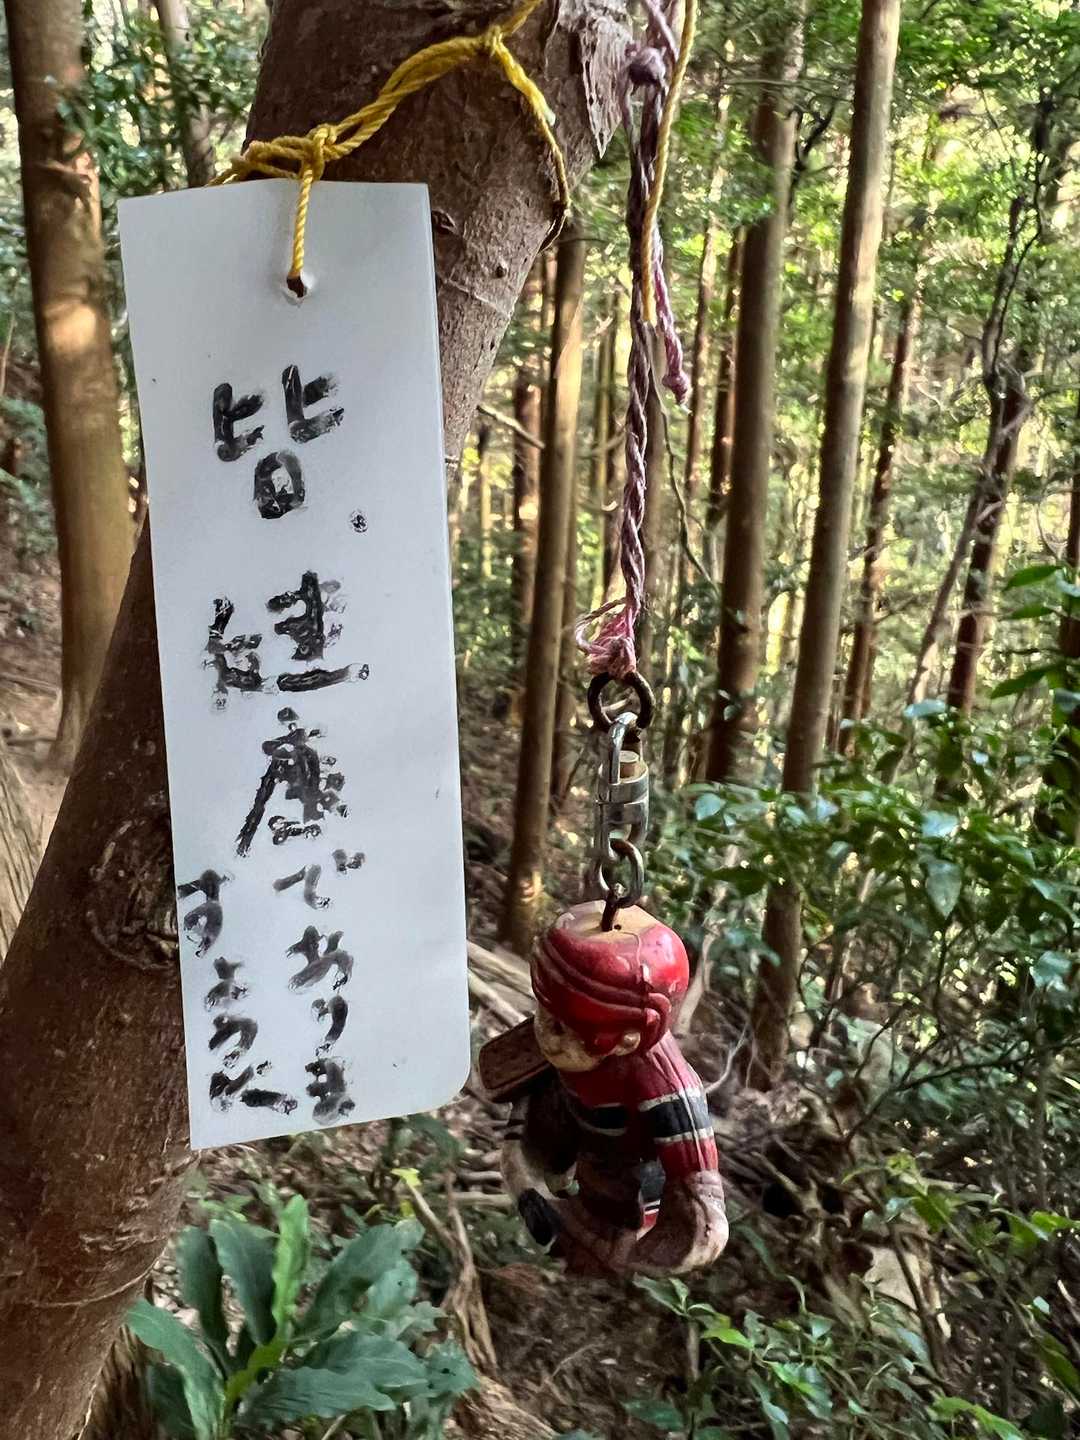 皆、健康でありま
すように